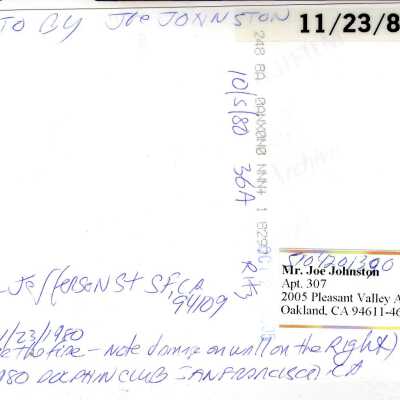 TO BY Joe JOHNSTON
11/23/8
10/5/80 36A
Mr. Joe Johnston
Apt. 307
2005 Pleasant Valley A
Oakland, CA 94611-46
JeffersoN St SF, CA
94109
/23/1980
the fire - Note damage on wall on the Right)
980 DOLPHIN CLUB SAN FRANCISCO CA